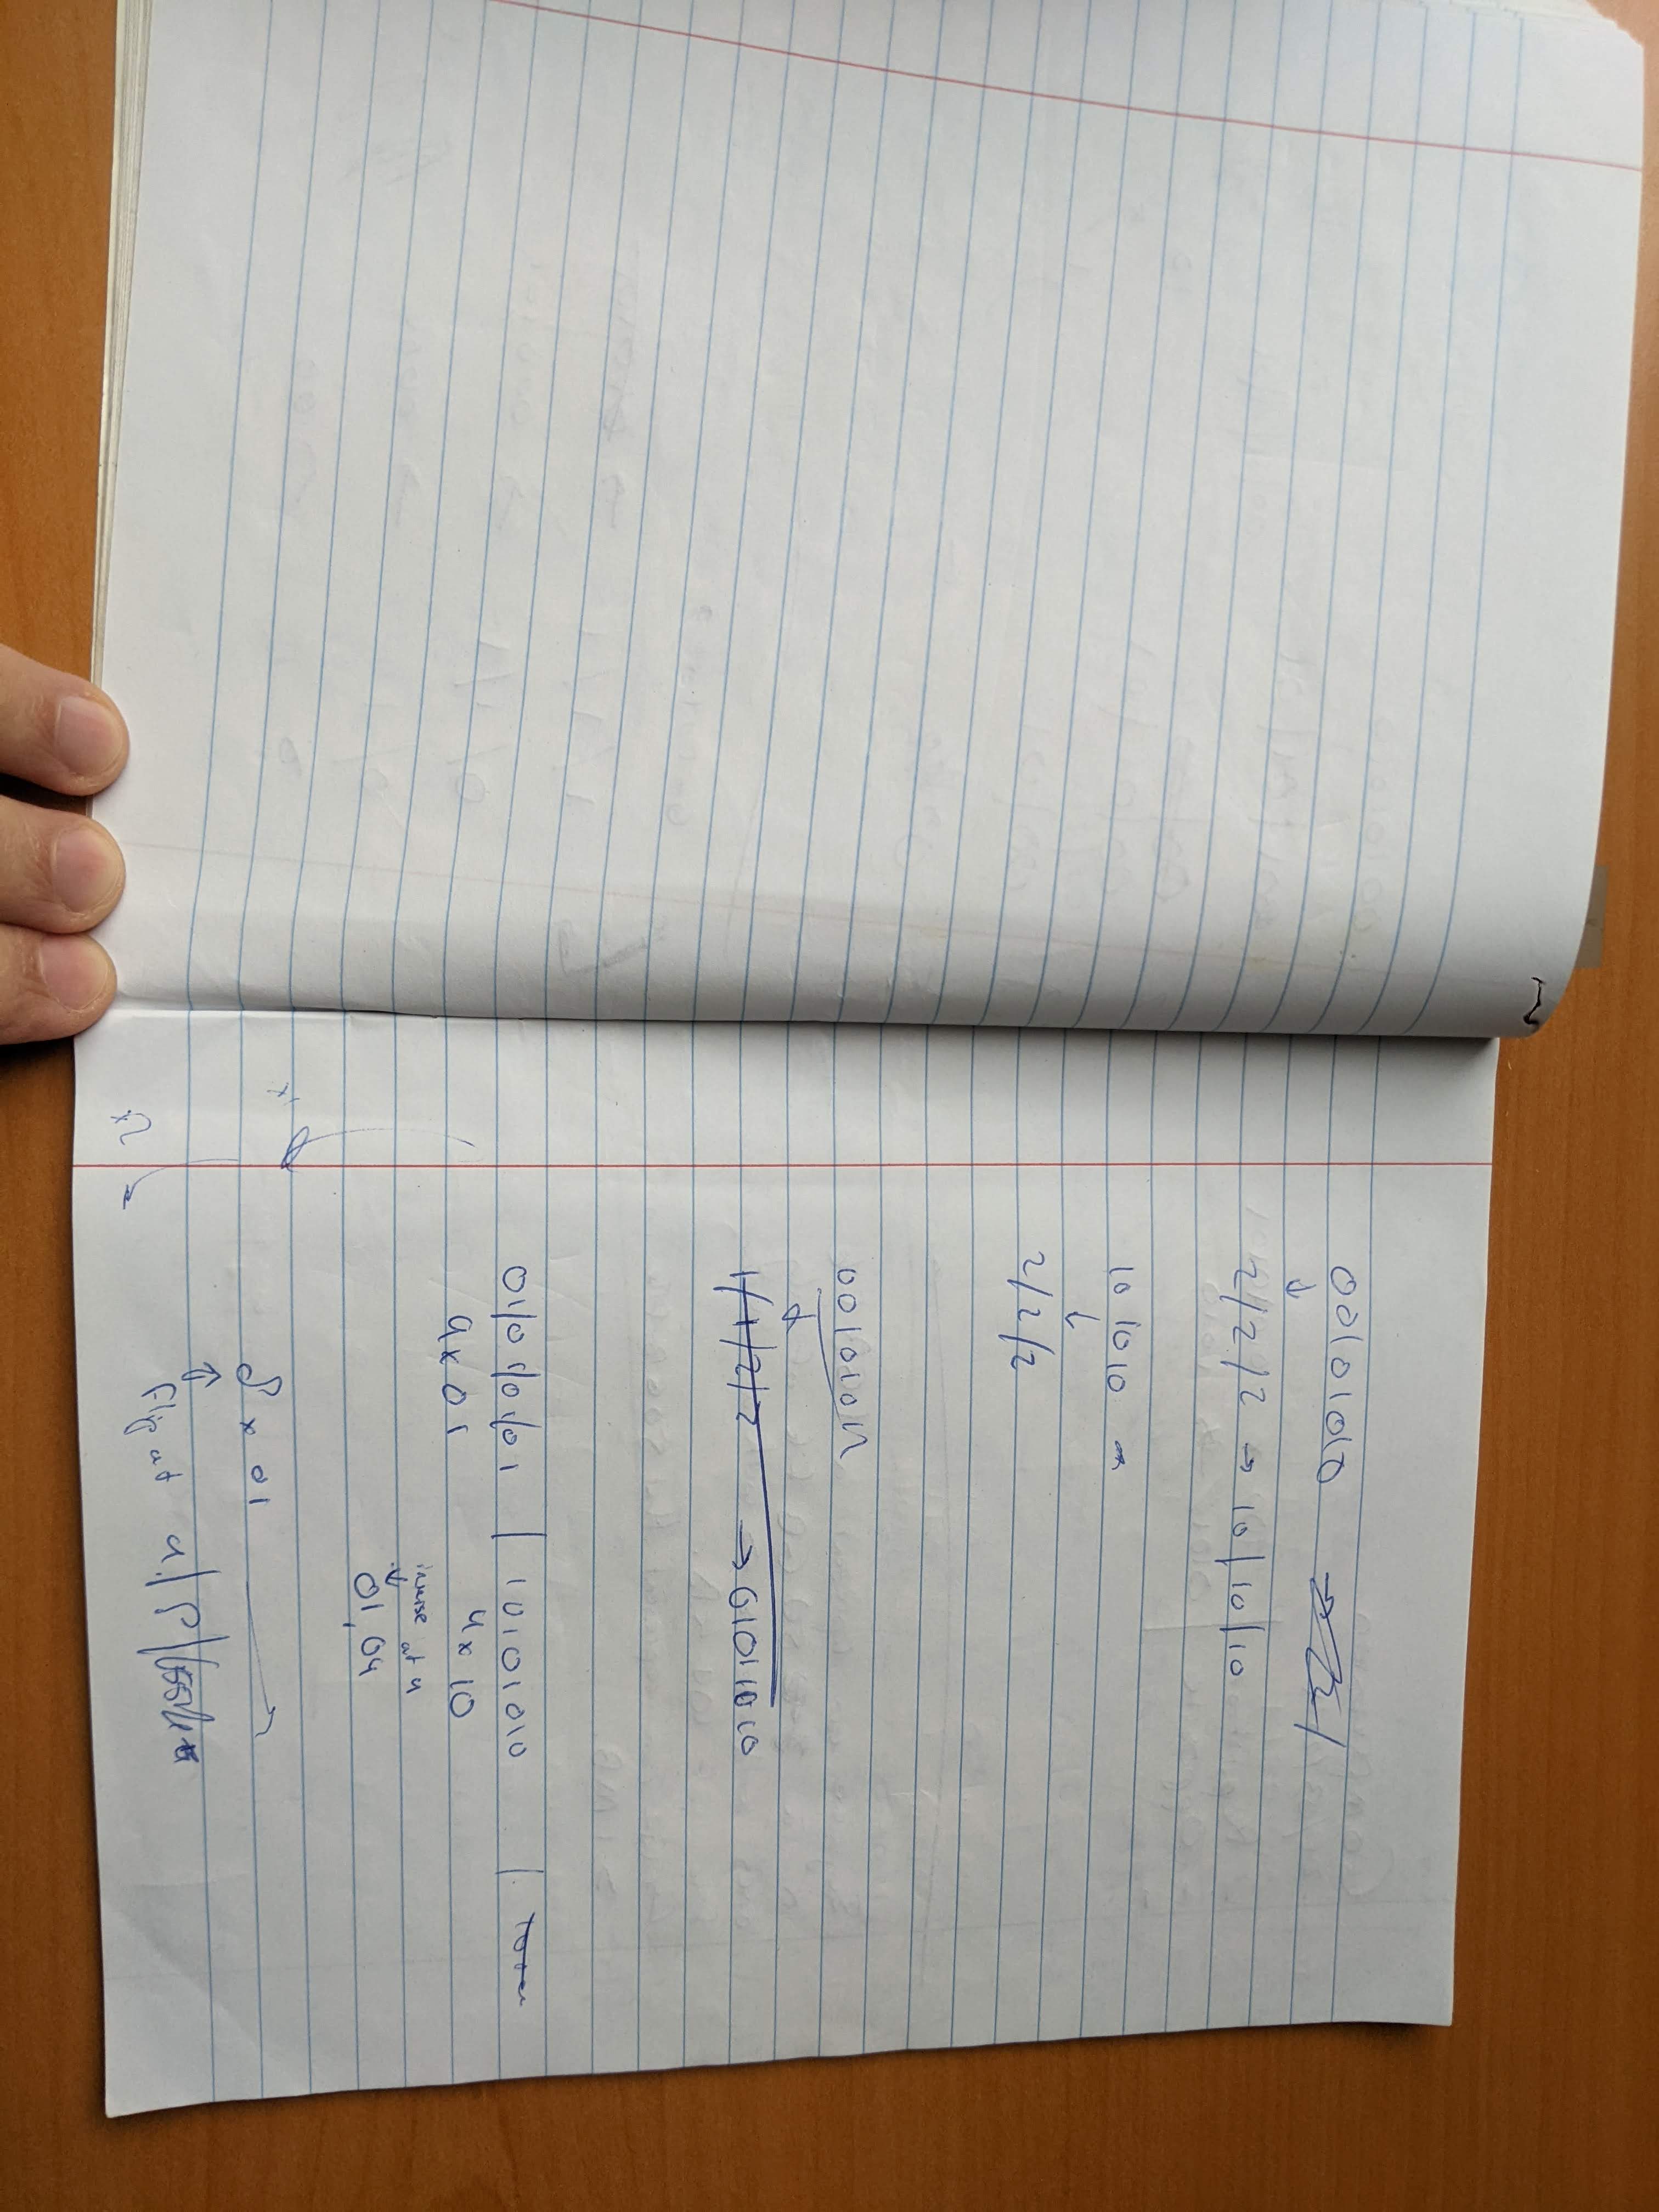 00101010 →
↓
2/2/2 → 10/10/10
101010
↓
2/2/2
00101011
↓
1/1/2/2 → 01011010
01/01/01/01 | 10101010 |
4x01 4x10
inverse at 4
↓
01,04
1x
8 x 01
↓
2x Flip at 4/8/